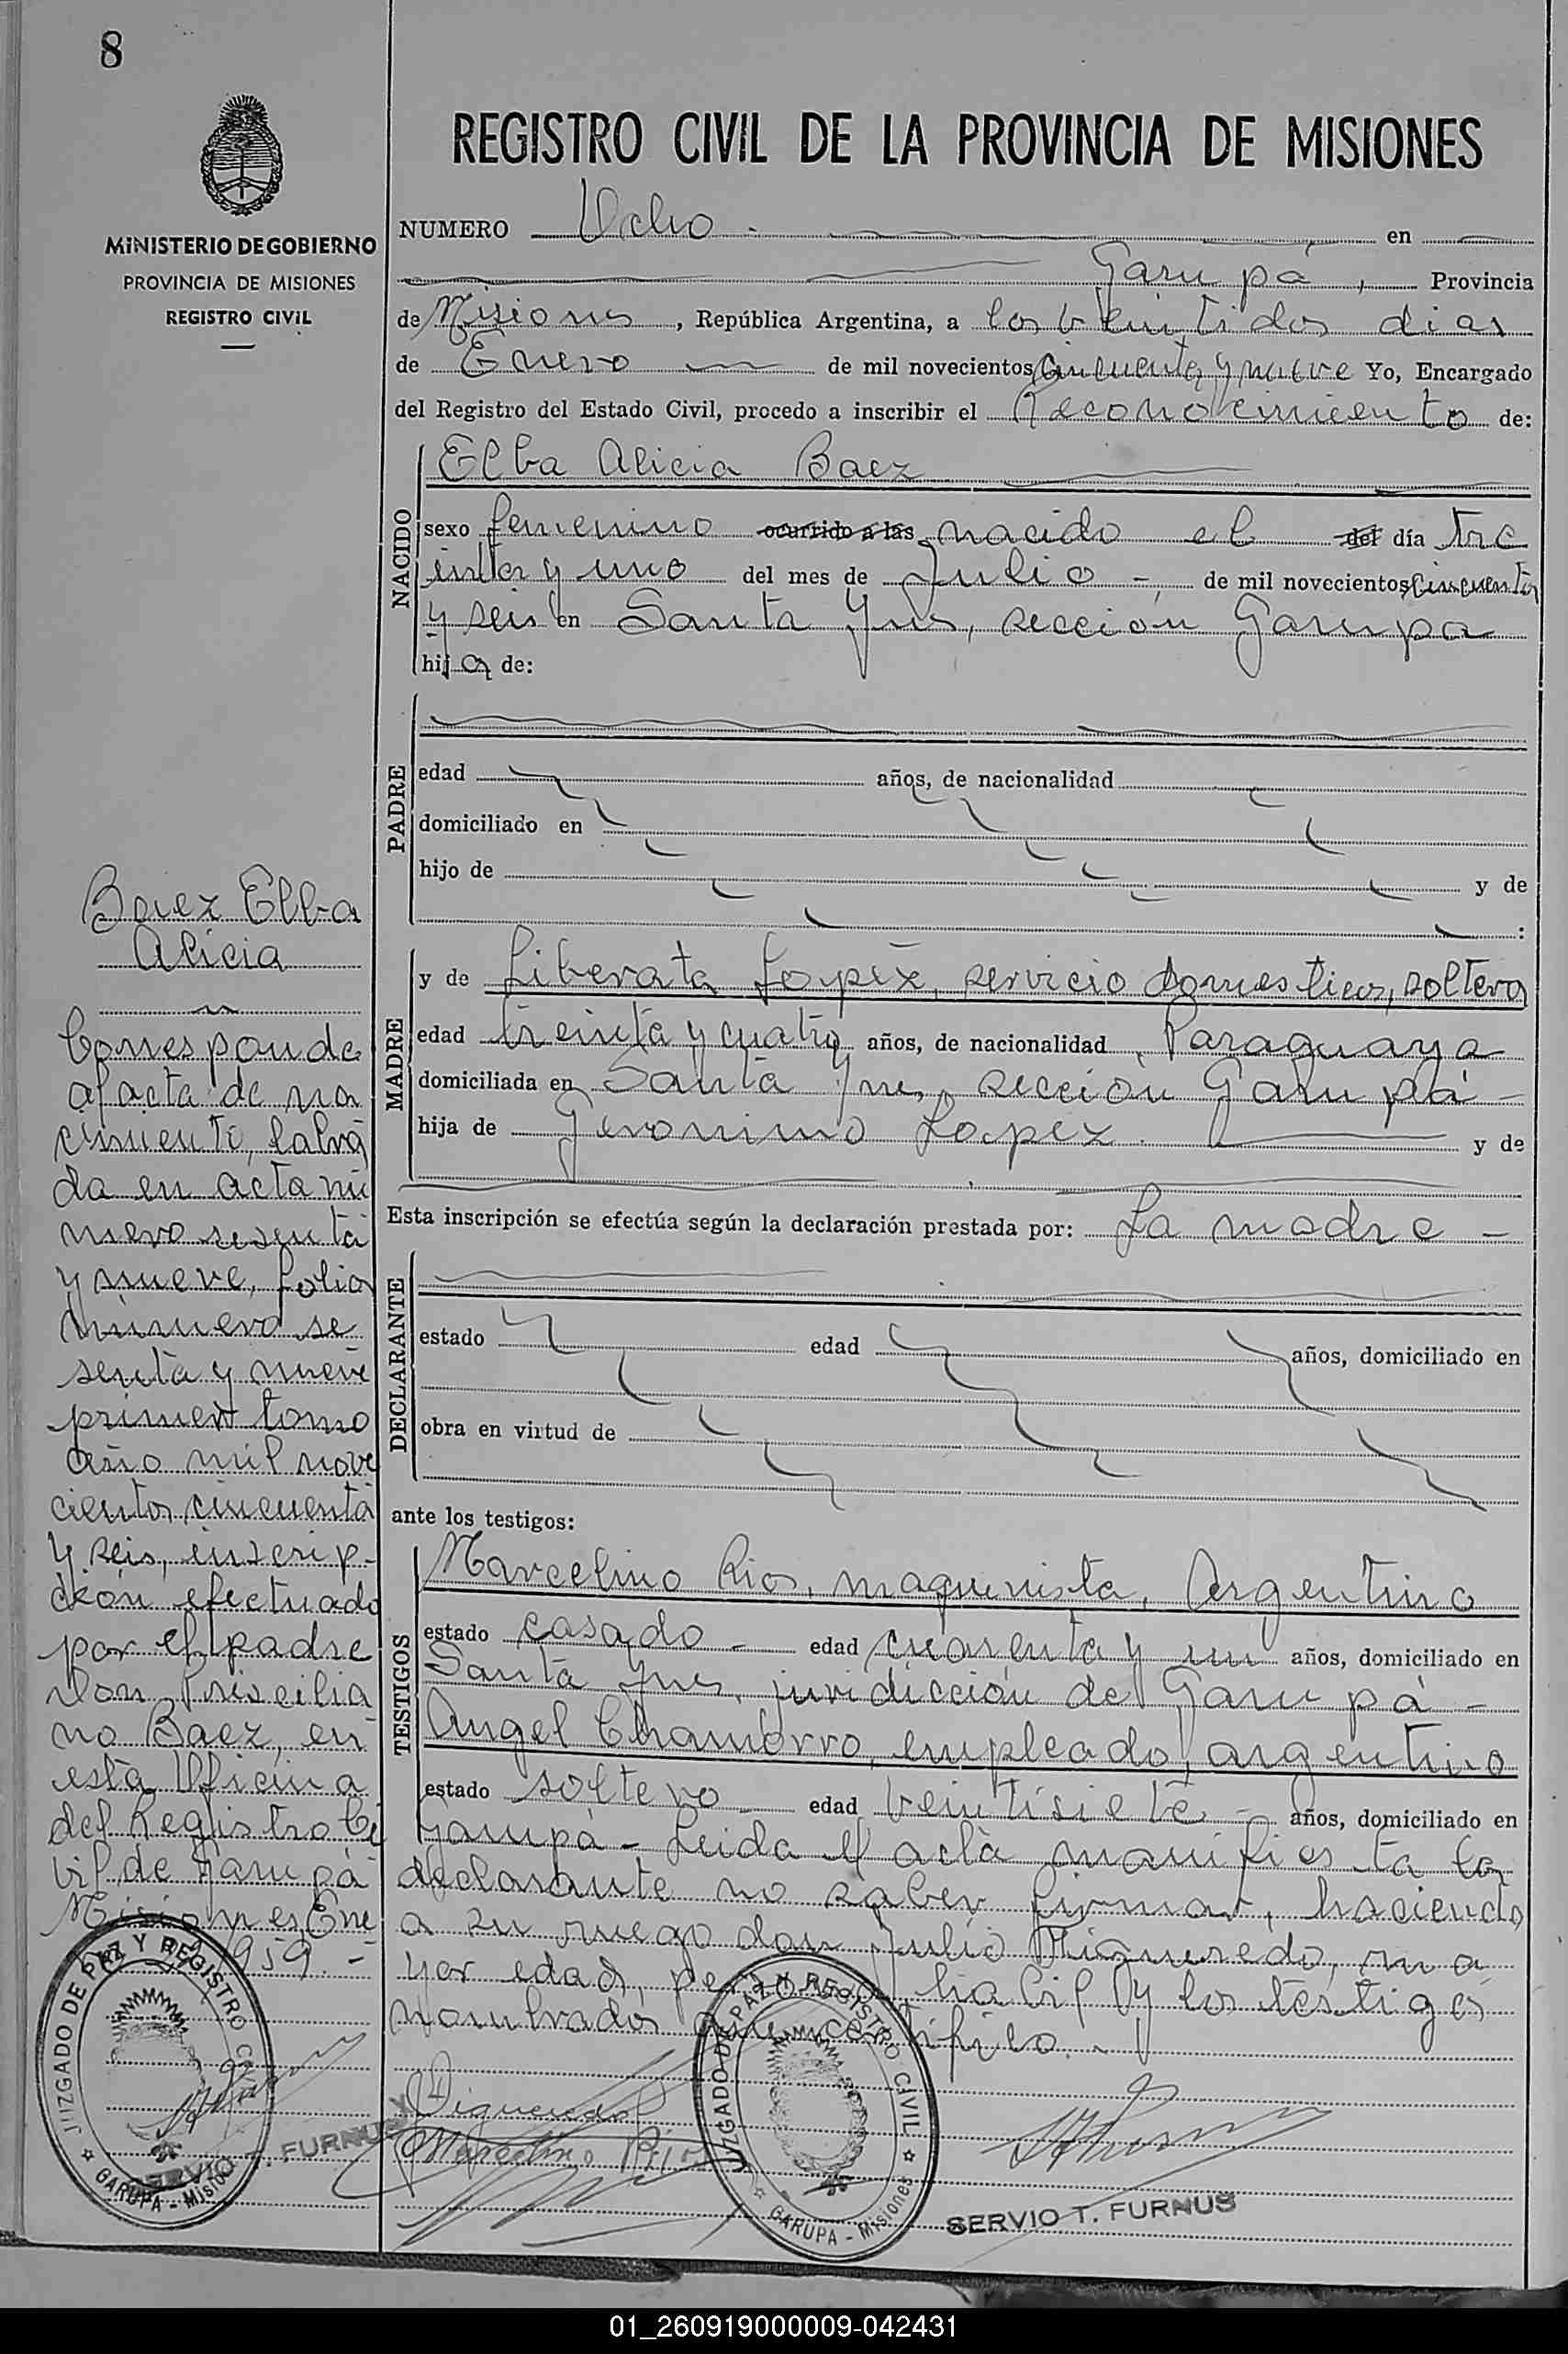 8
MINISTERIO DE GOBIERNO
PROVINCIA DE MISIONES
REGISTRO CIVIL
REGISTRO CIVIL DE LA PROVINCIA DE MISIONES
NUMERO Ocho - en
Garupá, Provincia
de Misiones, República Argentina, a los veintidos dias
de Enero de mil novecientos cincuenta y nueve Yo, Encargado
del Registro del Estado Civil, procedo a inscribir el Reconocimiento de:
NACIDO
Elba Alicia Baez
sexo femenino ocurrido a las nacido el del día tre
inta y uno del mes de Julio - de mil novecientos cincuenta
y seis en Santa Ynes, sección Garupa
hija de:
PADRE
edad años, de nacionalidad
domiciliado en
hijo de y de
:
MADRE
y de Liberata Lopez, servicio domesticos, soltera
edad treinta y cuatro años, de nacionalidad Paraguaya
domiciliada en Santa Ynes, sección Garupá -
hija de Geronimo Lopez. y de
Esta inscripción se efectúa según la declaración prestada por: La madre -
DECLARANTE
estado edad años, domiciliado en
obra en virtud de
ante los testigos:
TESTIGOS
Marcelino Rios, maquinista, Argentino
estado casado - edad cuarenta y un años, domiciliado en
Santa Ynes, juridicción de Garupá -
Angel Chamorro, empleado, argentino
estado soltero edad veintisiete - años, domiciliado en
Garupá - Leida el acta manifiesta la
declarante no saber firmar, haciendo
a su ruego don Julio Figueredo, ma
yor edad, persona habil y los testigos
nombrados que certifico. -
Baez Elba
Alicia
Corresponde
al acta de na
cimiento, labra
da en acta nu
mero sesenta
y nueve, folio
número se
senta y nueve
primer tomo
año mil nove
cientos cincuenta
y seis, inscrip-
ción efectuado
por el padre
Don Priscilia
no Baez, en
esta Oficina
del Registro Ci
vil de Garupá
Misiones Ene
1959. -
JUZGADO DE PAZ Y REGISTRO CIVIL
GARUPA - Misiones
SERVIO T. FURNUS
Figueredo
Marcelino Rios
JUZGADO DE PAZ Y REGISTRO CIVIL
GARUPA - Misiones
SERVIO T. FURNUS
01_260919000009-042431